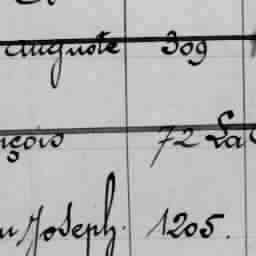 Auguste 309
nçois 72 La
Joseph. 1205.